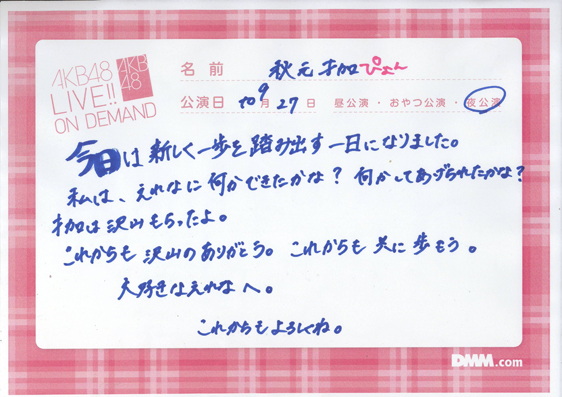 AKB48
LIVE!!
ON DEMAND
AKB
48
名前 秋元才加ぴょん
公演日 9月27日 昼公演・おやつ公演・夜公演
今日は新しく一歩を踏み出す一日になりました。
私は、えれなに何かできたかな？何かしてあげられたかな？
才加は沢山もらったよ。
これからも沢山のありがとう。これからも共に歩もう。
大好きなえれなへ。
これからもよろしくね。
DMM.com